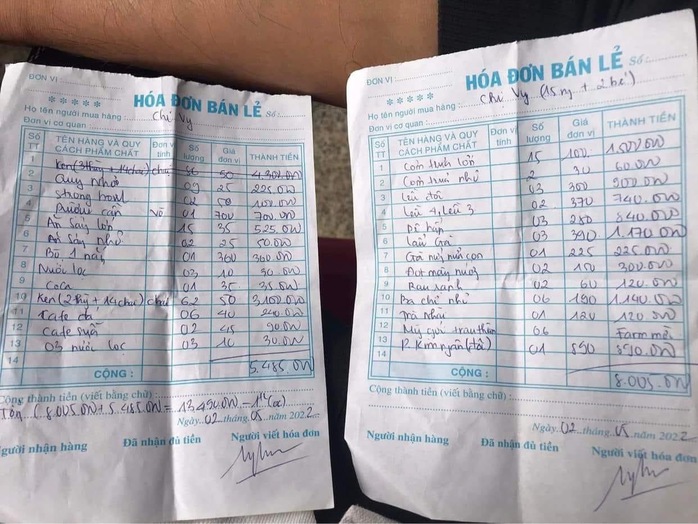 ĐƠN VỊ :
HÓA ĐƠN BÁN LẺ Số:
★ ★ ★ ★ ★
Họ tên người mua hàng : Chị Vy
Đơn vị cơ quan :
SỐ TT TÊN HÀNG VÀ QUY CÁCH PHẨM CHẤT Đơn vị tính Số lượng Giá đơn vị THÀNH TIỀN
1 Ken (3 thg + 14 chai) 50 4.300.000
2 Quy Nhơ 09 25 225.000
3 Strong bow 02 50 100.000
4 Rượu cần 01 700 700.000
5 Ăn sáng lớn 15 35 525.000
6 Ăn sáng nhỏ 02 25 50.000
7 01 300 300.000
8 Nước lọc 03 10 30.000
9 Coca 01 35 35.000
10 Ken (2 thg + 14 chai) chai 62 50 3.100.000
11 Cafe đá 06 40 240.000
12 Cafe sữa 02 45 90.000
13 03 nước lọc 03 10 30.000
14
CỘNG : 5.485.000
Cộng thành tiền (viết bằng chữ) :
(8.005.000 + 5.485.000 = 13.490.000
Ngày 02 tháng 05 năm 2022
Người nhận hàng Đã nhận đủ tiền Người viết hóa đơn
ĐƠN VỊ :
HÓA ĐƠN BÁN LẺ Số:
★ ★ ★ ★ ★
Họ tên người mua hàng : Chị Vy (15 ng + 2 bé)
Đơn vị cơ quan :
SỐ TT TÊN HÀNG VÀ QUY CÁCH PHẨM CHẤT Đơn vị tính Số lượng Giá đơn vị THÀNH TIỀN
1 lớn 15 100 1.500.000
2 nhỏ 2 30 60.000
3 Lều đôi 03 300 900.000
4 Lều 4, lều 3 02 370 740.000
5 Dê hấp 03 280 840.000
6 Lẩu Gà 03 390 1.170.000
7 Gà 01 225 225.000
8 Đọt mây nướng 02 150 300.000
9 Rau xanh 02 60 120.000
10 Ba chỉ nhỏ 06 190 1.140.000
11 01 120 120.000
12 Mỳ gói 06
13 P. Kim ngân 01 890 890.000
14
CỘNG : 8.005.000
Cộng thành tiền (viết bằng chữ) :
Ngày 02 tháng 05 năm 2022
Người nhận hàng Đã nhận đủ tiền Người viết hóa đơn